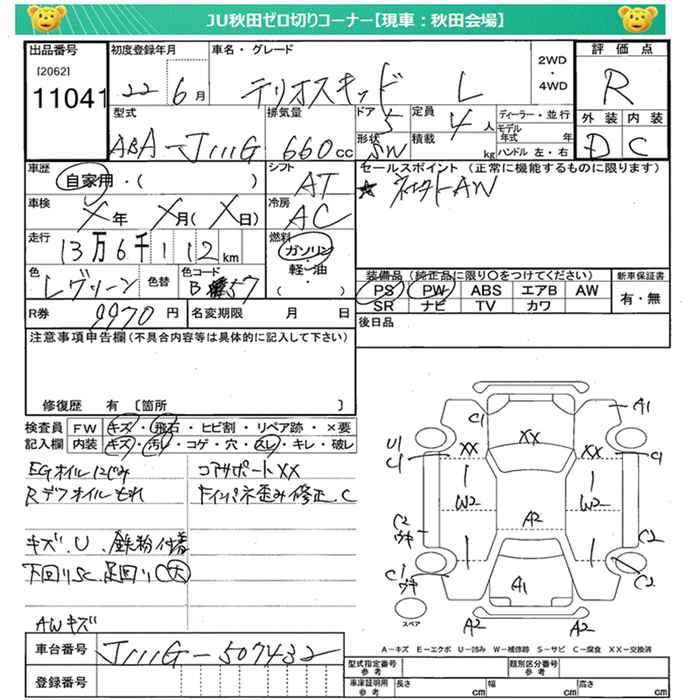 JU秋田ゼロ切りコーナー【現車：秋田会場】
出品番号 初度登録年月 車名・グレード 評価点
[2062]
11041 22 6月 テリオスキッド L 2WD・4WD R
型式 排気量 ドア 定員 ディーラー・並行 外装 内装
ABA-J111G 660cc 5 4人 モデル年式 年 D C
形状 積載 kg ハンドル 左・右
SW
車歴 シフト セールスポイント（正常に機能するものに限ります）
自家用・（ ） AT ☆ 社外AW
車検 冷房
X年 X月（X日） AC
走行 燃料
13万6千112km ガソリン・軽油
（ ）
色 色替 色コード 装備品（純正品に限り○をつけてください） 新車保証書
Lグリーン B 57 PS PW ABS エアB AW 有・無
SR ナビ TV カワ
R券 9970円 名変期限 月 日 後日品
注意事項申告欄（不具合内容等は具体的に記入して下さい）
修復歴 有〔箇所 〕
検査員 FW キズ・飛石・ヒビ割・リペア跡・×要
記入欄 内装 キズ・汚れ・コゲ・穴・スレ・キレ・破レ
EGオイルにじみ コアサポートXX
Rデフオイルもれ
キズ、U 鉄粉付着
下回りSC、足回りC大
AWキズ
C1 A1
U1 C1 XX XX XX C1
W2 W2
C2 ウキ A2 C2
C1 ウキ A1 C2
スペア A2 A2
A－キズ E－エクボ U－凹み W－補修跡 S－サビ C－腐食 XX－交換済
車台番号 J111G-507432
登録番号
型式指定番号 参考 類別区分番号 参考
車庫証明用 参考 長さ cm 幅 cm 高さ cm